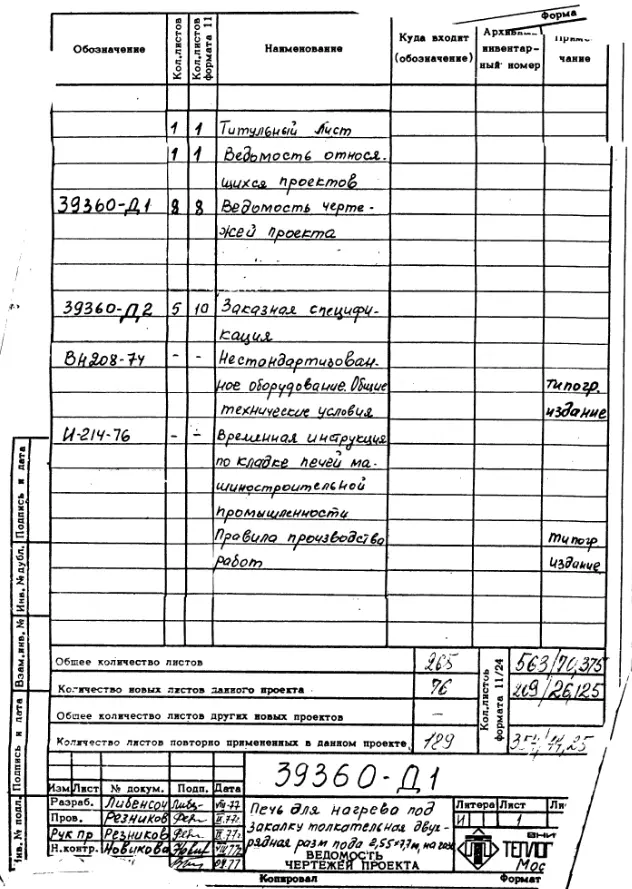 Форма
Обозначение
Кол.листов
Кол.листов формата 11
Наименование
Куда входит (обозначение)
инвентарный номер
Примечание
1 1 Титульный лист
1 1 Ведомость относя-
щихся проектов
39360-Д1 8 8 Ведомость черте-
жей проекта
39360-Д2 5 10 Заказная специфи-
кация
ВН208-74 - - Нестандартизован-
ное оборудование. Общие типогр.
технические условия издание
И-214-76 - - Временная инструкция
по кладке печей ма-
шиностроительной
промышленности
Правила производства типогр
работ издание
Общее количество листов 265
Кол.листов формата 11/24
563/70,375
Количество новых листов данного проекта 76 209/26,125
Общее количество листов других новых проектов —
Количество листов повторно примененных в данном проекте 189
39360-Д1
Изм Лист № докум. Подп. Дата
Разраб. Либенсон
Пров. Резников
Рук пр Резников
Н.контр. Новикова
Печь для нагрева под
закалку толкательная двух-
рядная разм пода 2,55×7,7м, на газе
ВЕДОМОСТЬ
ЧЕРТЕЖЕЙ ПРОЕКТА
Литера Лист
И 1
ВНИ
ТЕПЛОГ
Мос
Копировал Формат
Инв. № подл.
Подпись и дата
Взам.инв. №
Инв. № дубл.
Подпись и дата